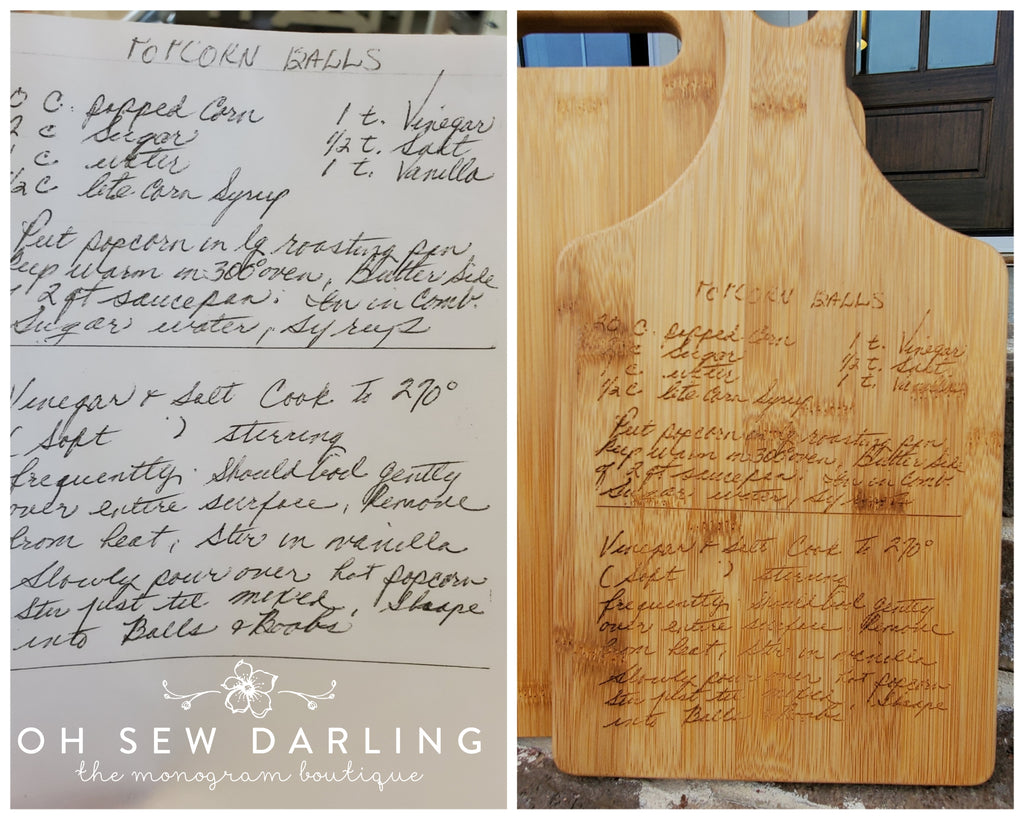 POPCORN BALLS
0 C. popped Corn 1 t. Vinegar
2 c Sugar 1/2 t. Salt
1 c. water 1 t. Vanilla
1/2 C lite Corn Syrup
Put popcorn in lg roasting pan
Keep warm in 300° oven, Butter Side
2 qt saucepan. in Comb.
Sugar water, Syrup
Vinegar & Salt Cook To 270°
( Soft ) stirring
frequently. Should boil gently
over entire surface, Remove
from heat, Stir in vanilla
Slowly pour over hot popcorn
Stir just til mixed, Shape
into Balls & Boobs
OH SEW DARLING
the monogram boutique
POPCORN BALLS
20 C. popped Corn 1 t. Vinegar
2 c Sugar 1/2 t. Salt
1 c. water 1 t. Vanilla
1/2 C lite Corn Syrup
Put popcorn in lg roasting pan
Keep warm in 300° oven, Butter Side
of 2 qt saucepan. in Comb.
Sugar water, Syrup
Vinegar & Salt Cook To 270°
( Soft ) stirring
frequently. Should boil gently
over entire surface Remove
from heat, Stir in vanilla
Slowly pour over hot popcorn
Stir just til mixed, Shape
into Balls & Boobs